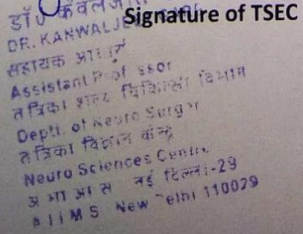 Signature of TSEC
डॉ
DR. KANWALJE
सहायक आचार्य
Assistant Professor
तंत्रिका शल्य चिकित्सा विभाग
Deptt. of Neuro Surgery
तंत्रिका विज्ञान केन्द्र
Neuro Sciences Centre
अ भा आ सं नई दिल्ली-29
A I I M S New Delhi 110029